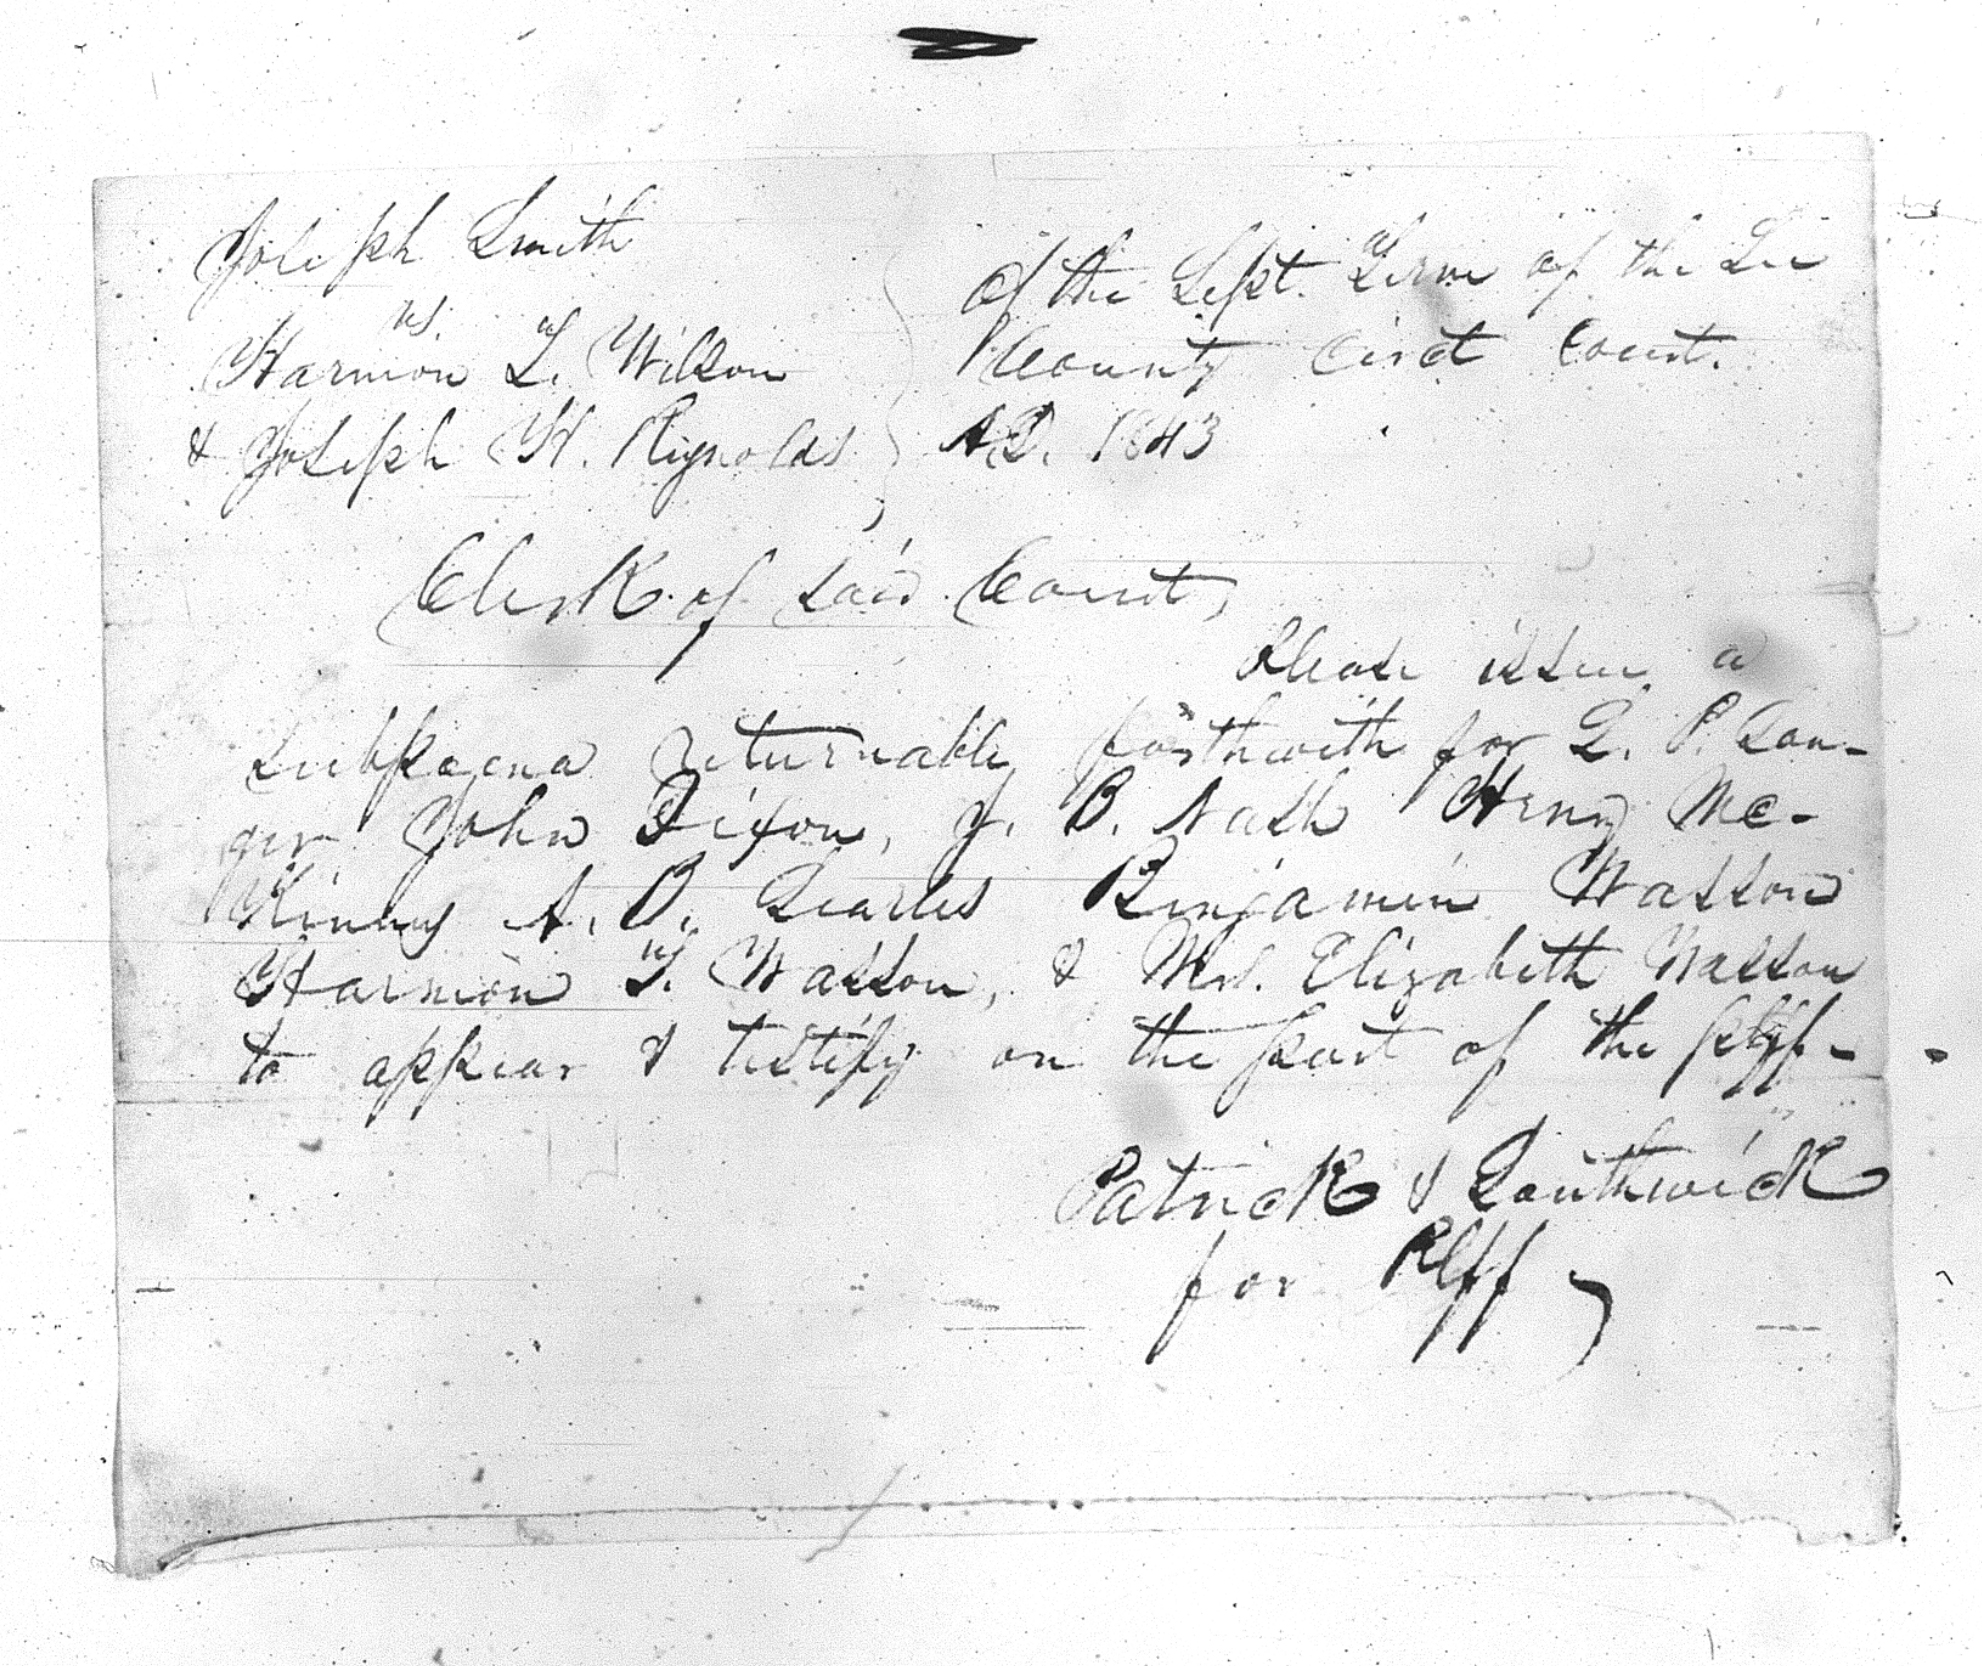 Joseph Smith
vs.
Harmon T. Wilson
& Joseph H. Reynolds
Of the Sept. Term of the Lee
County Circt Court.
A.D. 1843
Clerk of said Court,
Please issue a
Subpoena returnable forthwith for L. P. San-
ger John Dixon, J. B. Nash Henry Mc-
Kinney A. O. Searles Benjamin Wasson
Harmon T. Wasson, & Mrs. Elizabeth Wasson
to appear & testify on the part of the plff-
Patrick & Southwick
for Plff